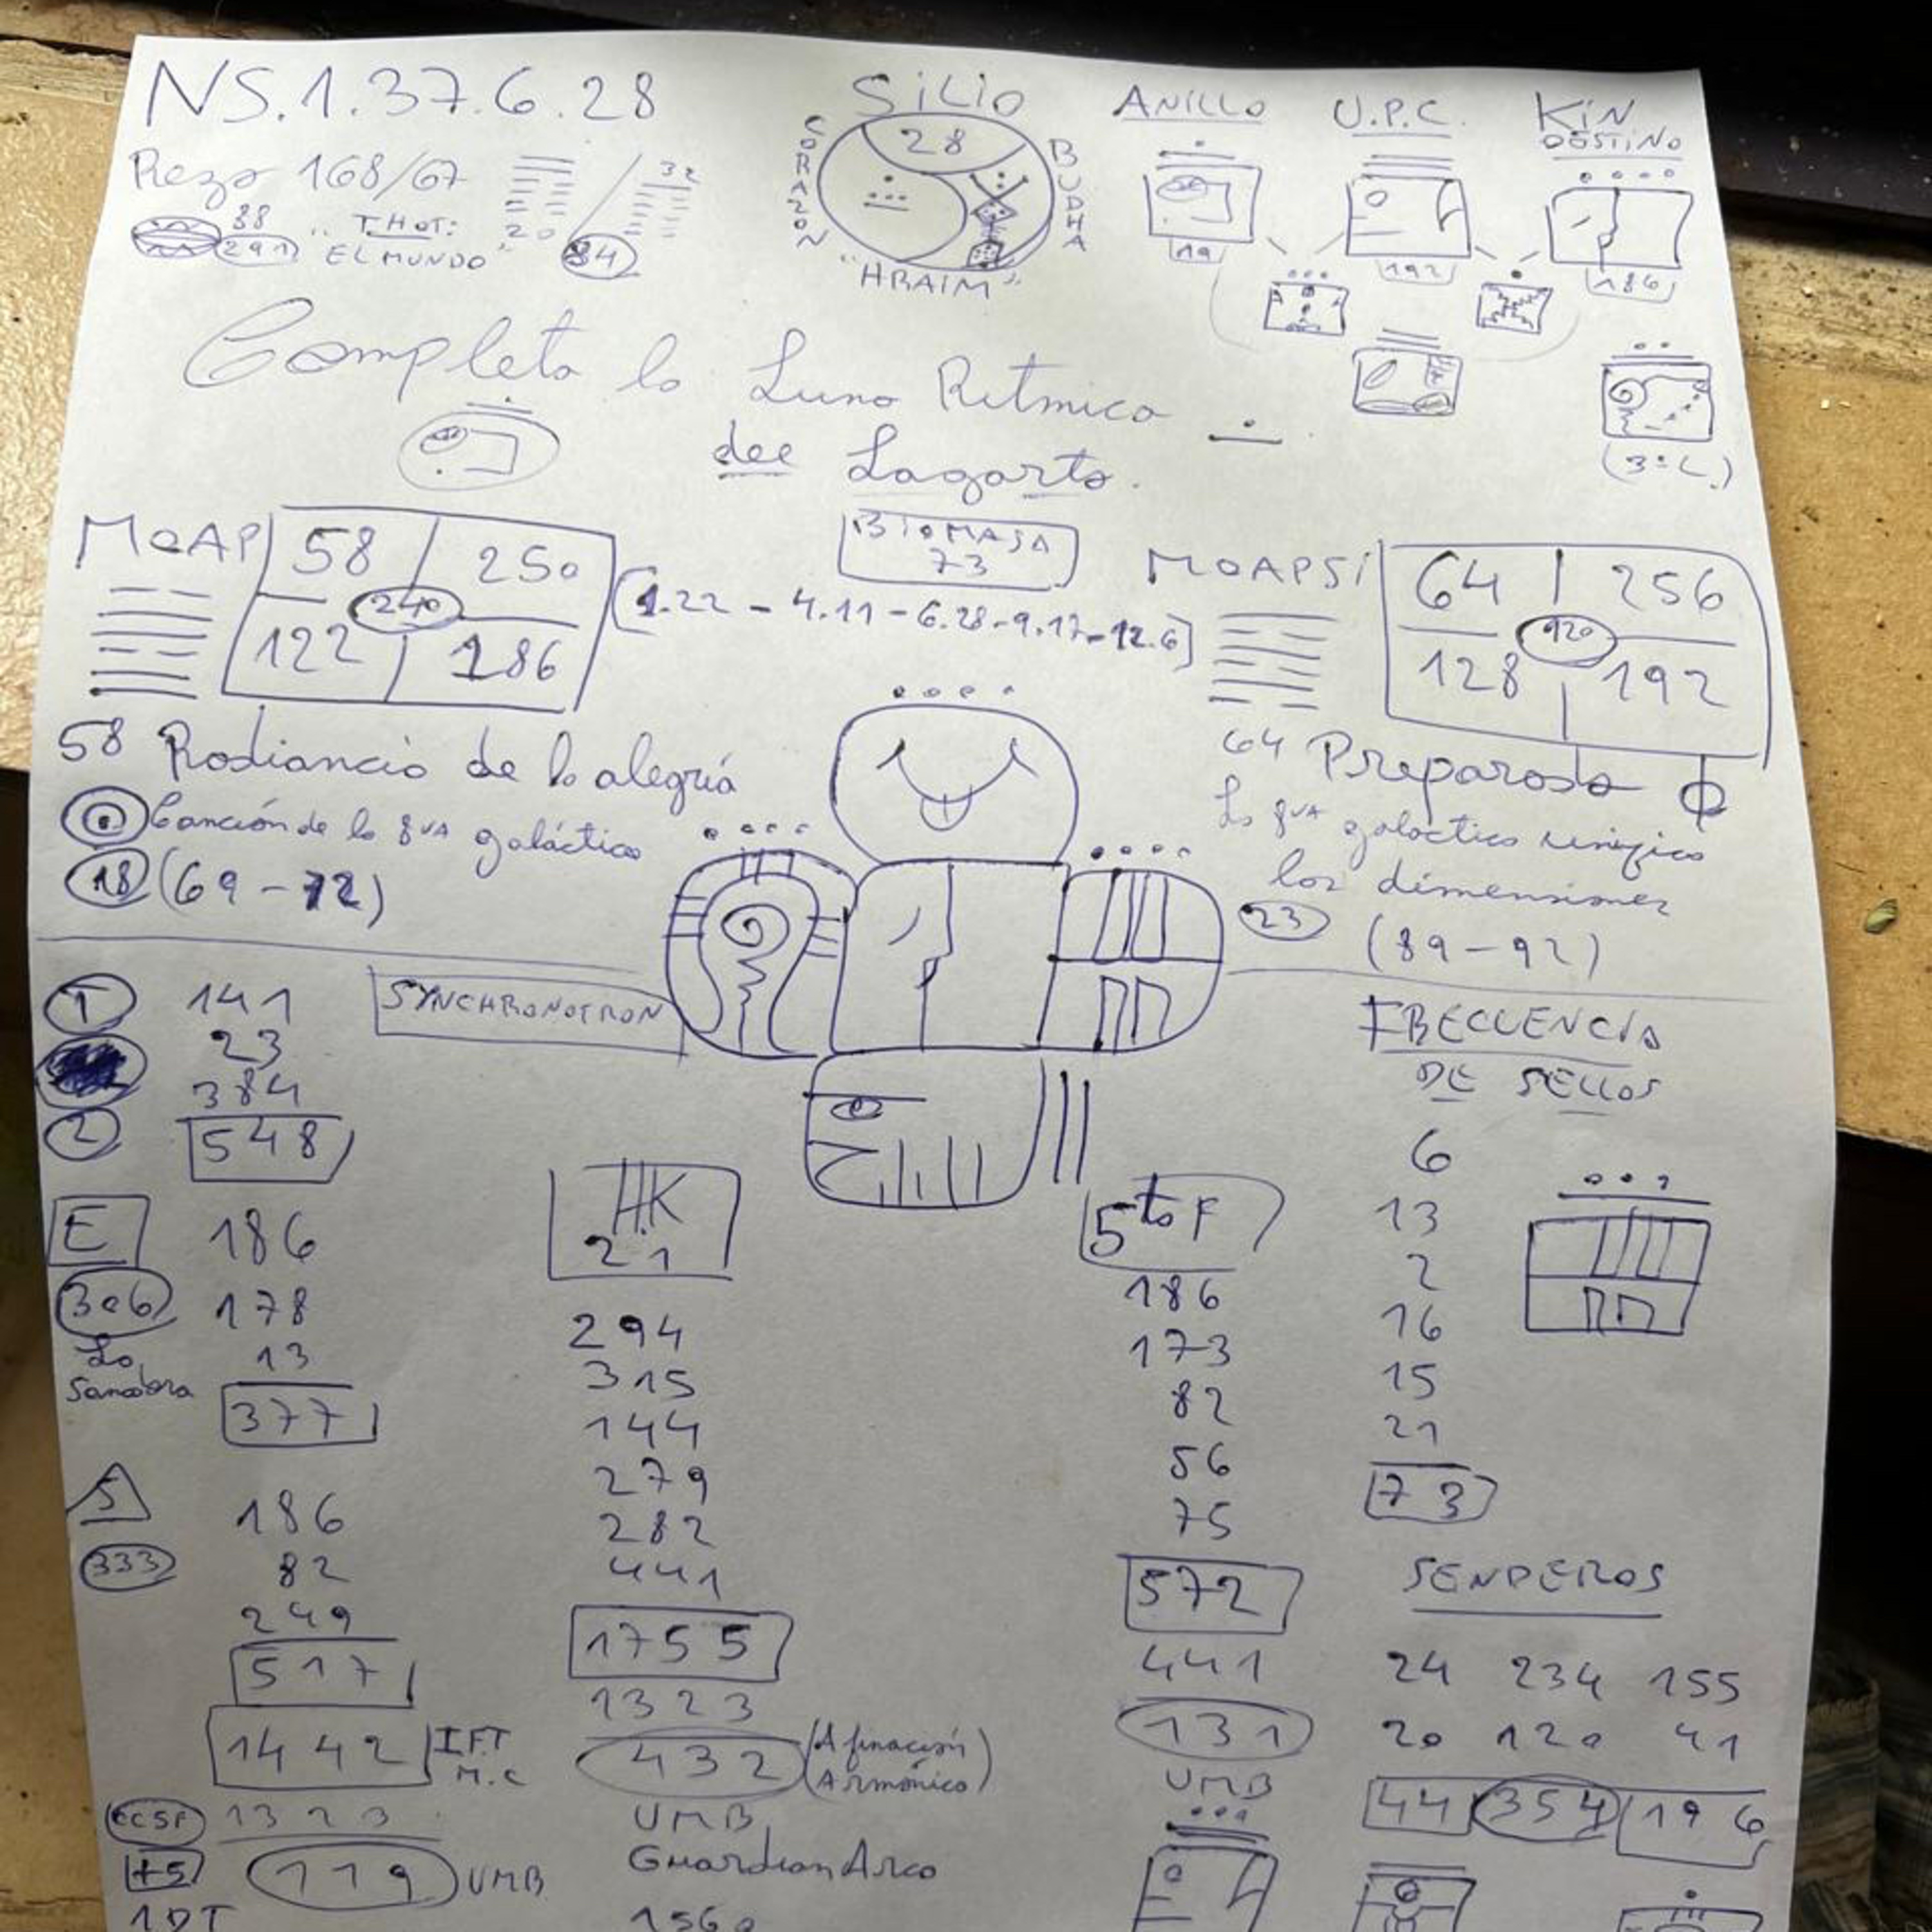 NS.1.37.6.28
Rezo 168/67
20
32
88
291
"T.HOT:
EL MUNDO"
84
SiLiO
28
CORAZON
BUDHA
"HRAIM"
ANILLO
U.P.C.
KiN
DESTiNO
19
192
186
(3ª C)
Completa la Luna Ritmica
del Lagarto.
MOAP
58 250
240
122 186
BIOMASA
73
[1.22 - 4.11 - 6.28 - 9.17 - 12.6]
MOAPSi
64 256
920
128 192
58 Radiancia de la alegría
Canción de la 8va galáctica
18 (69-72)
64 Preparada
La 8va galactica unifica
las dimensiones
23
(89-92)
SYNCHRONOTRON
1 141
23
384
2
548
E 186
306 178
La 13
377
5 186
333 82
249
517
1442 I.F.T
M.C
1323
+5 119 UMB
1DT
H.K
21
294
315
144
279
282
441
1755
1323
432 (Afinación
Armónica)
UMB
Guardian Arco
1560
5to F
186
173
82
56
75
572
441
131
UMB
FRECUENCIA
DE SELLOS
6
13
2
16
15
21
73
SENDEROS
24 234 155
20 120 41
44 354 196